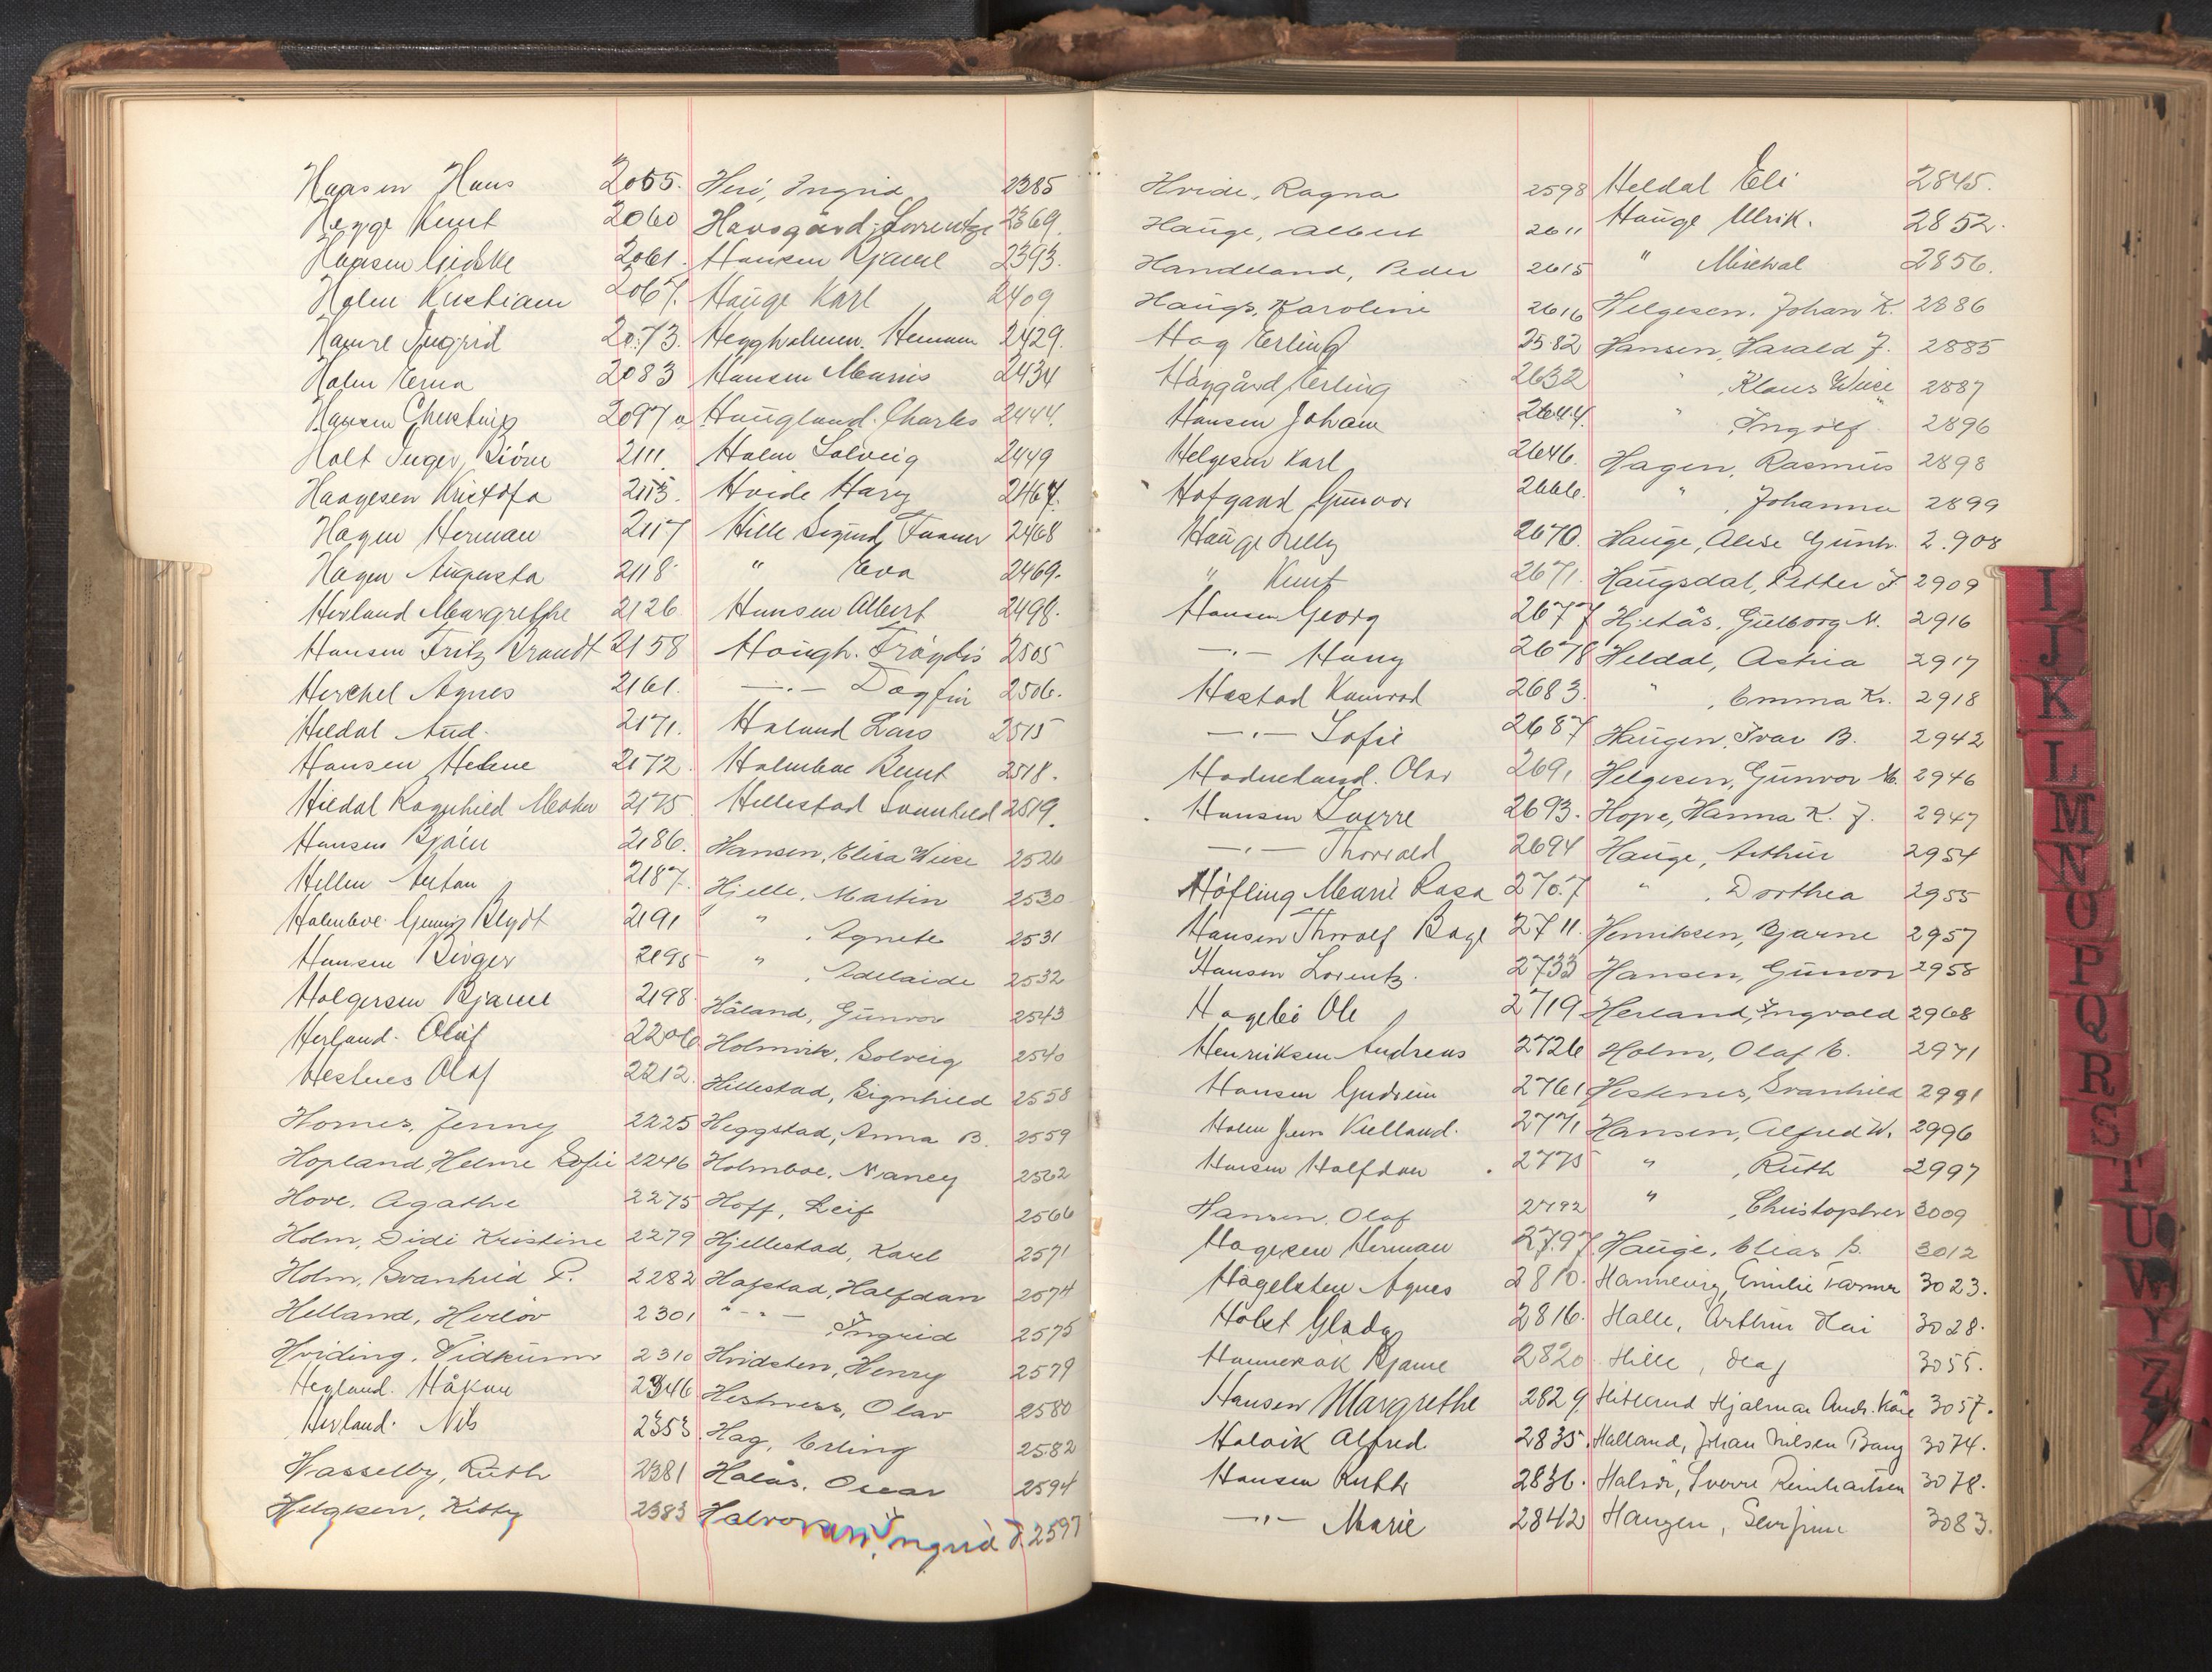 Haasen Hans 2055.
Hegge Knut 2060
Haasen Gidske 2061.
Holm Kristian 2067.
Hamre Ingrid 2073.
Holm Erna 2083
Hansen Christine 2097a
Holt Inger, Biörn 2111.
Haagesen Kristofa 2115.
Hagen Herman 2117
Hagen Augusta 2118
Herland Margrethe 2126
Hansen Fritz Brandt 2158
Herchel Agnes 2161.
Heldal Aud. 2171.
Hansen Helene 2172
Hildal Ragnhild 2175
Hansen Bjørn 2186.
Hellen Anton 2187.
Holmboe Blydt 2191
Hansen Birger 2195
Holgersen Bjarne 2198
Herland. Olaf 2206
Hestnes Olaf 2212.
Homes, Jenny 2225
Hopland, Helene Sofie 2246
Hove, Agathe 2275
Holm, Didi Kristine 2279
Holm, Svanhild P. 2282
Helland, Herlov 2301
Hviding, Vidkunn 2310
Hegland. Håkon 2346
Herland. Nils 2353
Hasselby, Ruth 2381
Helgesen, Kitty 2383
Ingrid 2385
Havsgård, Lorentze 2369.
Hansen Bjarne 2393.
Hauge Karl 2409
Heggholmen. Herman 2429.
Hansen Marius 2434
Haugland. Charles 2444.
Holm Solveig 2449
Hvide Harry 2467.
Hille Sigurd Fasmer 2468
" Eva 2469.
Hansen Albert 2498.
Haugh. Frøydis 2505
—"— Dagfin 2506.
Haland Lars 2515
Holmboe Bernt 2518.
Hellestad Svanhild 2519.
Hansen, Elisa Wiese 2526
Hjelle, Martin 2530
" , Agnete 2531
" , Adelaide 2532
Håland, Gunvor 2543
Holmvik, Solveig 2540
Hillestad, Signhild 2558
Heggstad, Anna B. 2559
Holmboe, Nancy 2562
Hoff, Leif 2566
Hjellestad, Karl 2571
Hafstad, Halfdan 2574
" - " - , Ingrid 2575
Hvidsten, Henry 2579
Hestness, Olav 2580
Hag, Erling 2582
Halås, Oscar 2594
Halvorsen, Ingrid J. 2597
Hvide, Ragna 2598
Hauge, Albert 2611
Handeland, Peder 2615
Haugs, Karoline 2616
Hag Erling 2582
Haygård Erling 2632
Hansen Johan 2644.
Helgesen Karl 2646.
Hofgand Gunvor 2666.
Hauge Nelly 2670.
" Knut 2671.
Hansen Georg 2677
—"— Harry 2678
Hestad Konrad 2683.
—"— Sofie 2687
Hodneland. Olav 2691
Hansen Sverre 2693.
—"— Thorvald 2694
Höfling Marie Rosa 2707
Hansen Thorolf Bage 2711.
Hansen Lorentz. 2733
Hagebö Ole 2719
Henriksen Andreas 2726
Hansen Gudrun 2761
Holm Jens Kielland. 2771
Hansen Halfdan 2775
Hansen, Olaf 2792
Hagesen Herman 2797
Hagelsten Agnes 2810.
Holst Glady 2816.
Hannevik Bjarne 2820
Hansen Margrethe 2829.
Halvik Alfred. 2835.
Hansen Ruth 2836.
—"— Marie 2842
Heldal Eli 2845.
Hauge Ulrik. 2852.
" Michal 2856.
Helgesen, Johan K. 2886
Hansen, Harald J. 2885
" , Klaus Wiese 2887
" , Ingolf 2896
Hagen, Rasmus 2898
" , Johanna 2899
Hauge, Alise Gunh. 2.908
Haugsdal, Petter J 2909
Hjetås, Gulborg M. 2916
Heldal, Astria 2917
" , Emma Kr. 2918
Haugen, Ivar B. 2942
Helgesen, Gunvor M. 2946
Hope, Hanna K. J. 2947
Hauge, Arthur 2954
" , Dorthea 2955
Henriksen, Bjarne 2957
Hansen, Gunvor 2958
Herland, Ingvald 2968
Holm, Olaf E. 2971
Hestenes, Svanhild 2991
Hansen, Alfred W. 2996
" , Ruth 2997
" , Christopher 3009
Hauge, Elias S. 3012
Hannevig, Emilie Fasmer 3023.
Halle, Arthur Kai 3028.
Hille, Olaf 3055.
Hitland Hjalmar Andr. Kåre 3057.
Halland, Johan Nilsen Bang 3074.
Halsör, Sverre Reinhartsen 3078.
Haugen, Serfine 3083.
I
J
K
L
M
N
O
P
Q
R
S
T
U
W
Y
Z